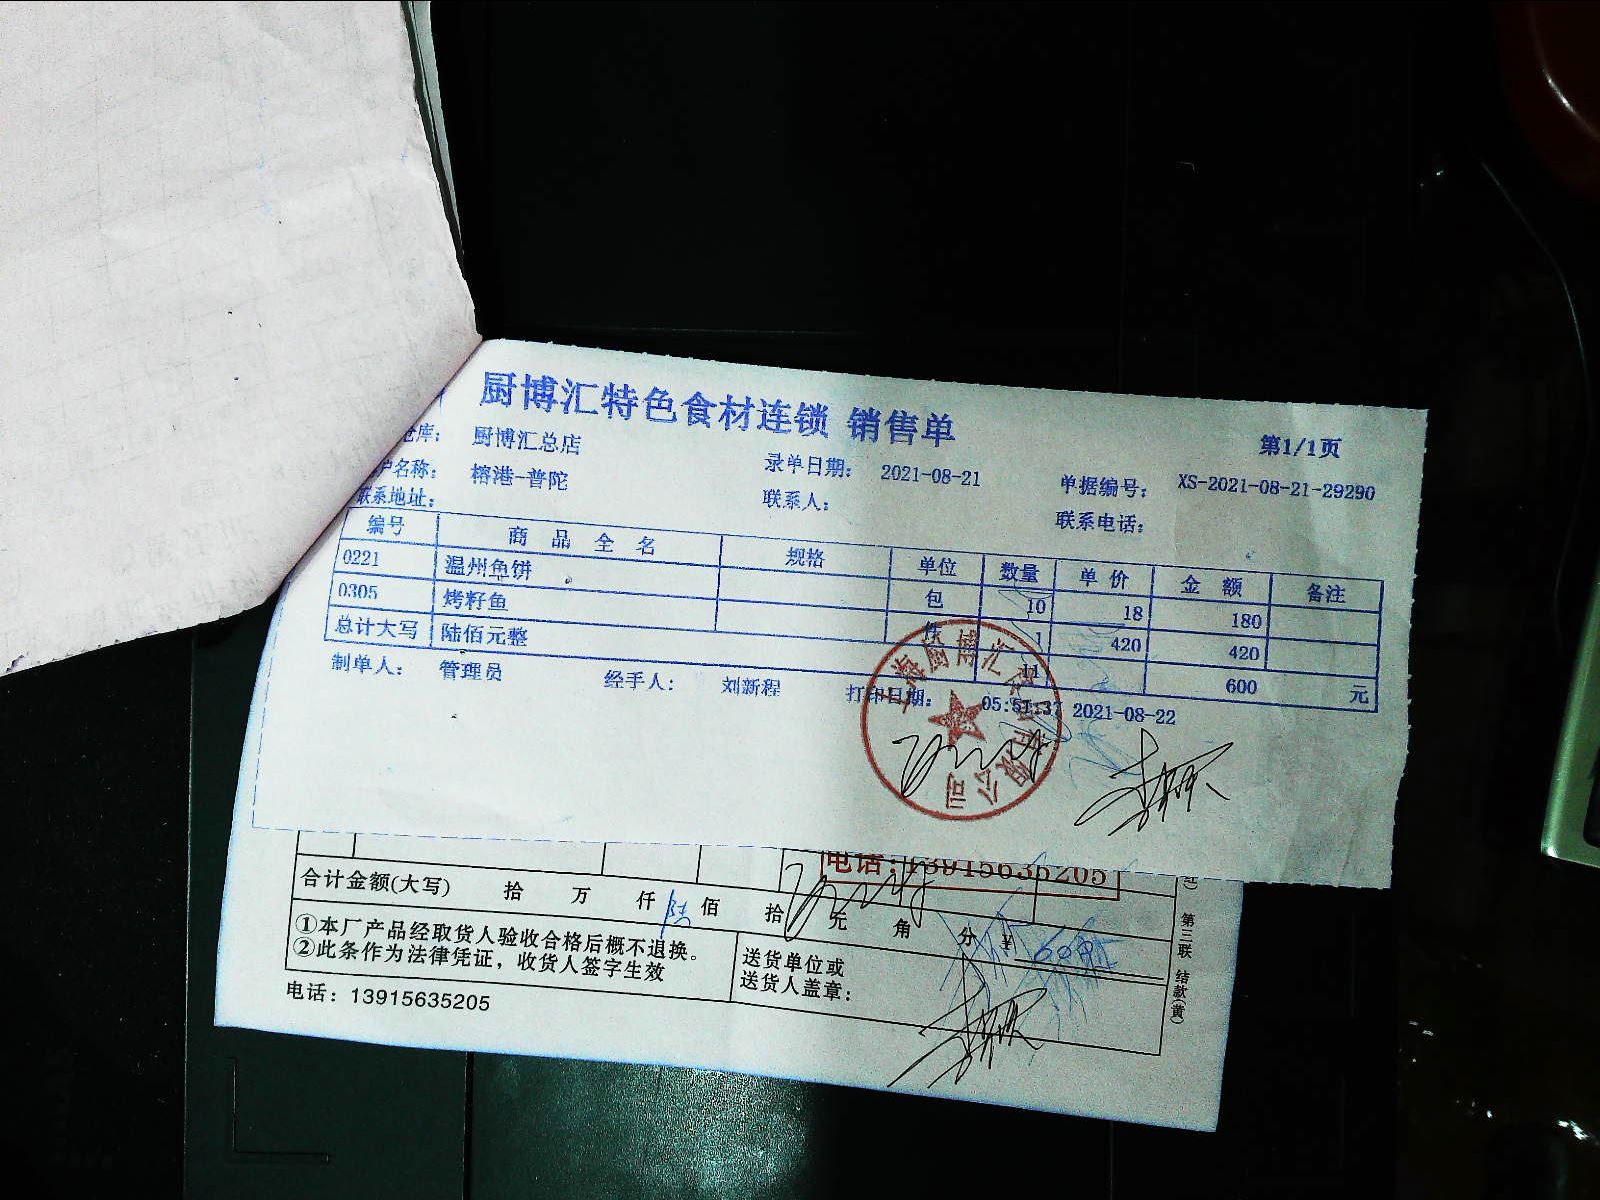 厨博汇特色食材连锁 销售单
第1/1页
仓库： 厨博汇总店 录单日期： 2021-08-21 单据编号： XS-2021-08-21-29290
户名称： 榕港-普陀 联系人： 联系电话：
联系地址：
编号 商 品 全 名 规格 单位 数量 单 价 金 额 备注
0221 温州鱼饼 包 10 18 180
0305 烤籽鱼 件 1 420 420
总计大写 陆佰元整 11 600 元
制单人： 管理员 经手人： 刘新程 打印日期： 05:51:37 2021-08-22
上海厨博汇 有限公司
电话:13915635205
合计金额(大写) 拾 万 仟 陆 佰 拾 元 角 分 ¥
①本厂产品经取货人验收合格后概不退换。
②此条作为法律凭证，收货人签字生效
送货单位或
送货人盖章：
电话：13915635205
第三联 结款(黄)